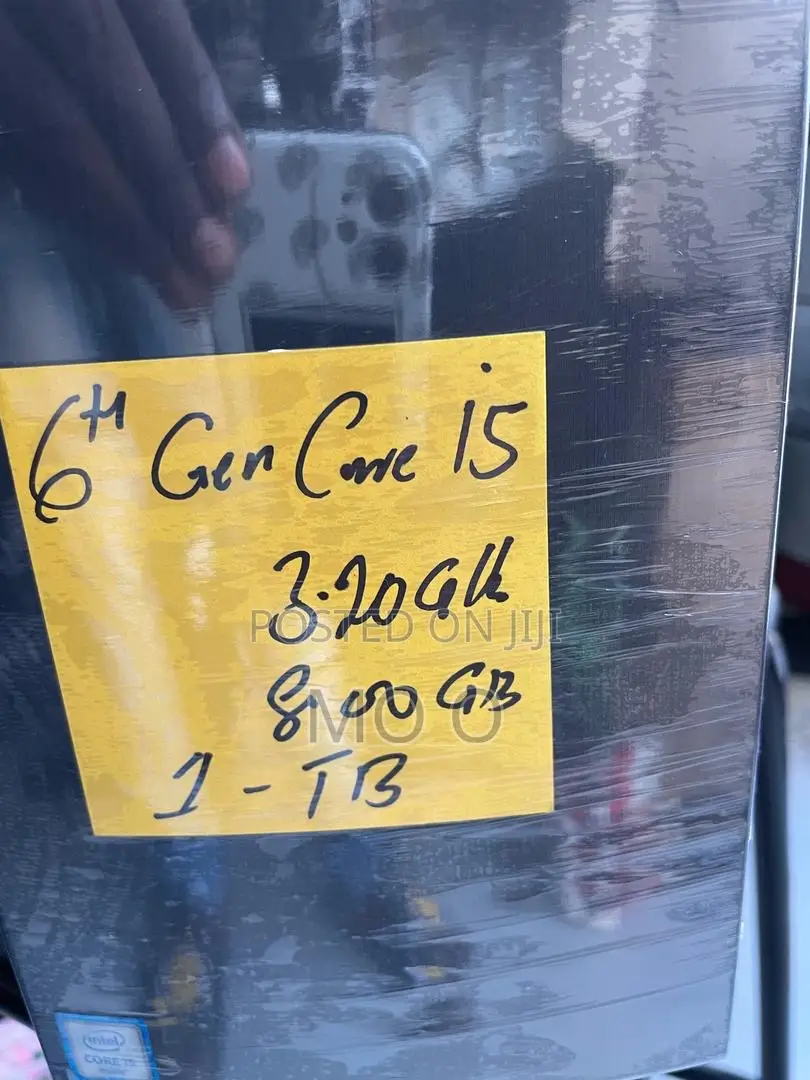 6th Gen Core i5
3.20GHz
POSTED ON JIJI
8.00 GB
MO O
1 - TB
intel
CORE i5